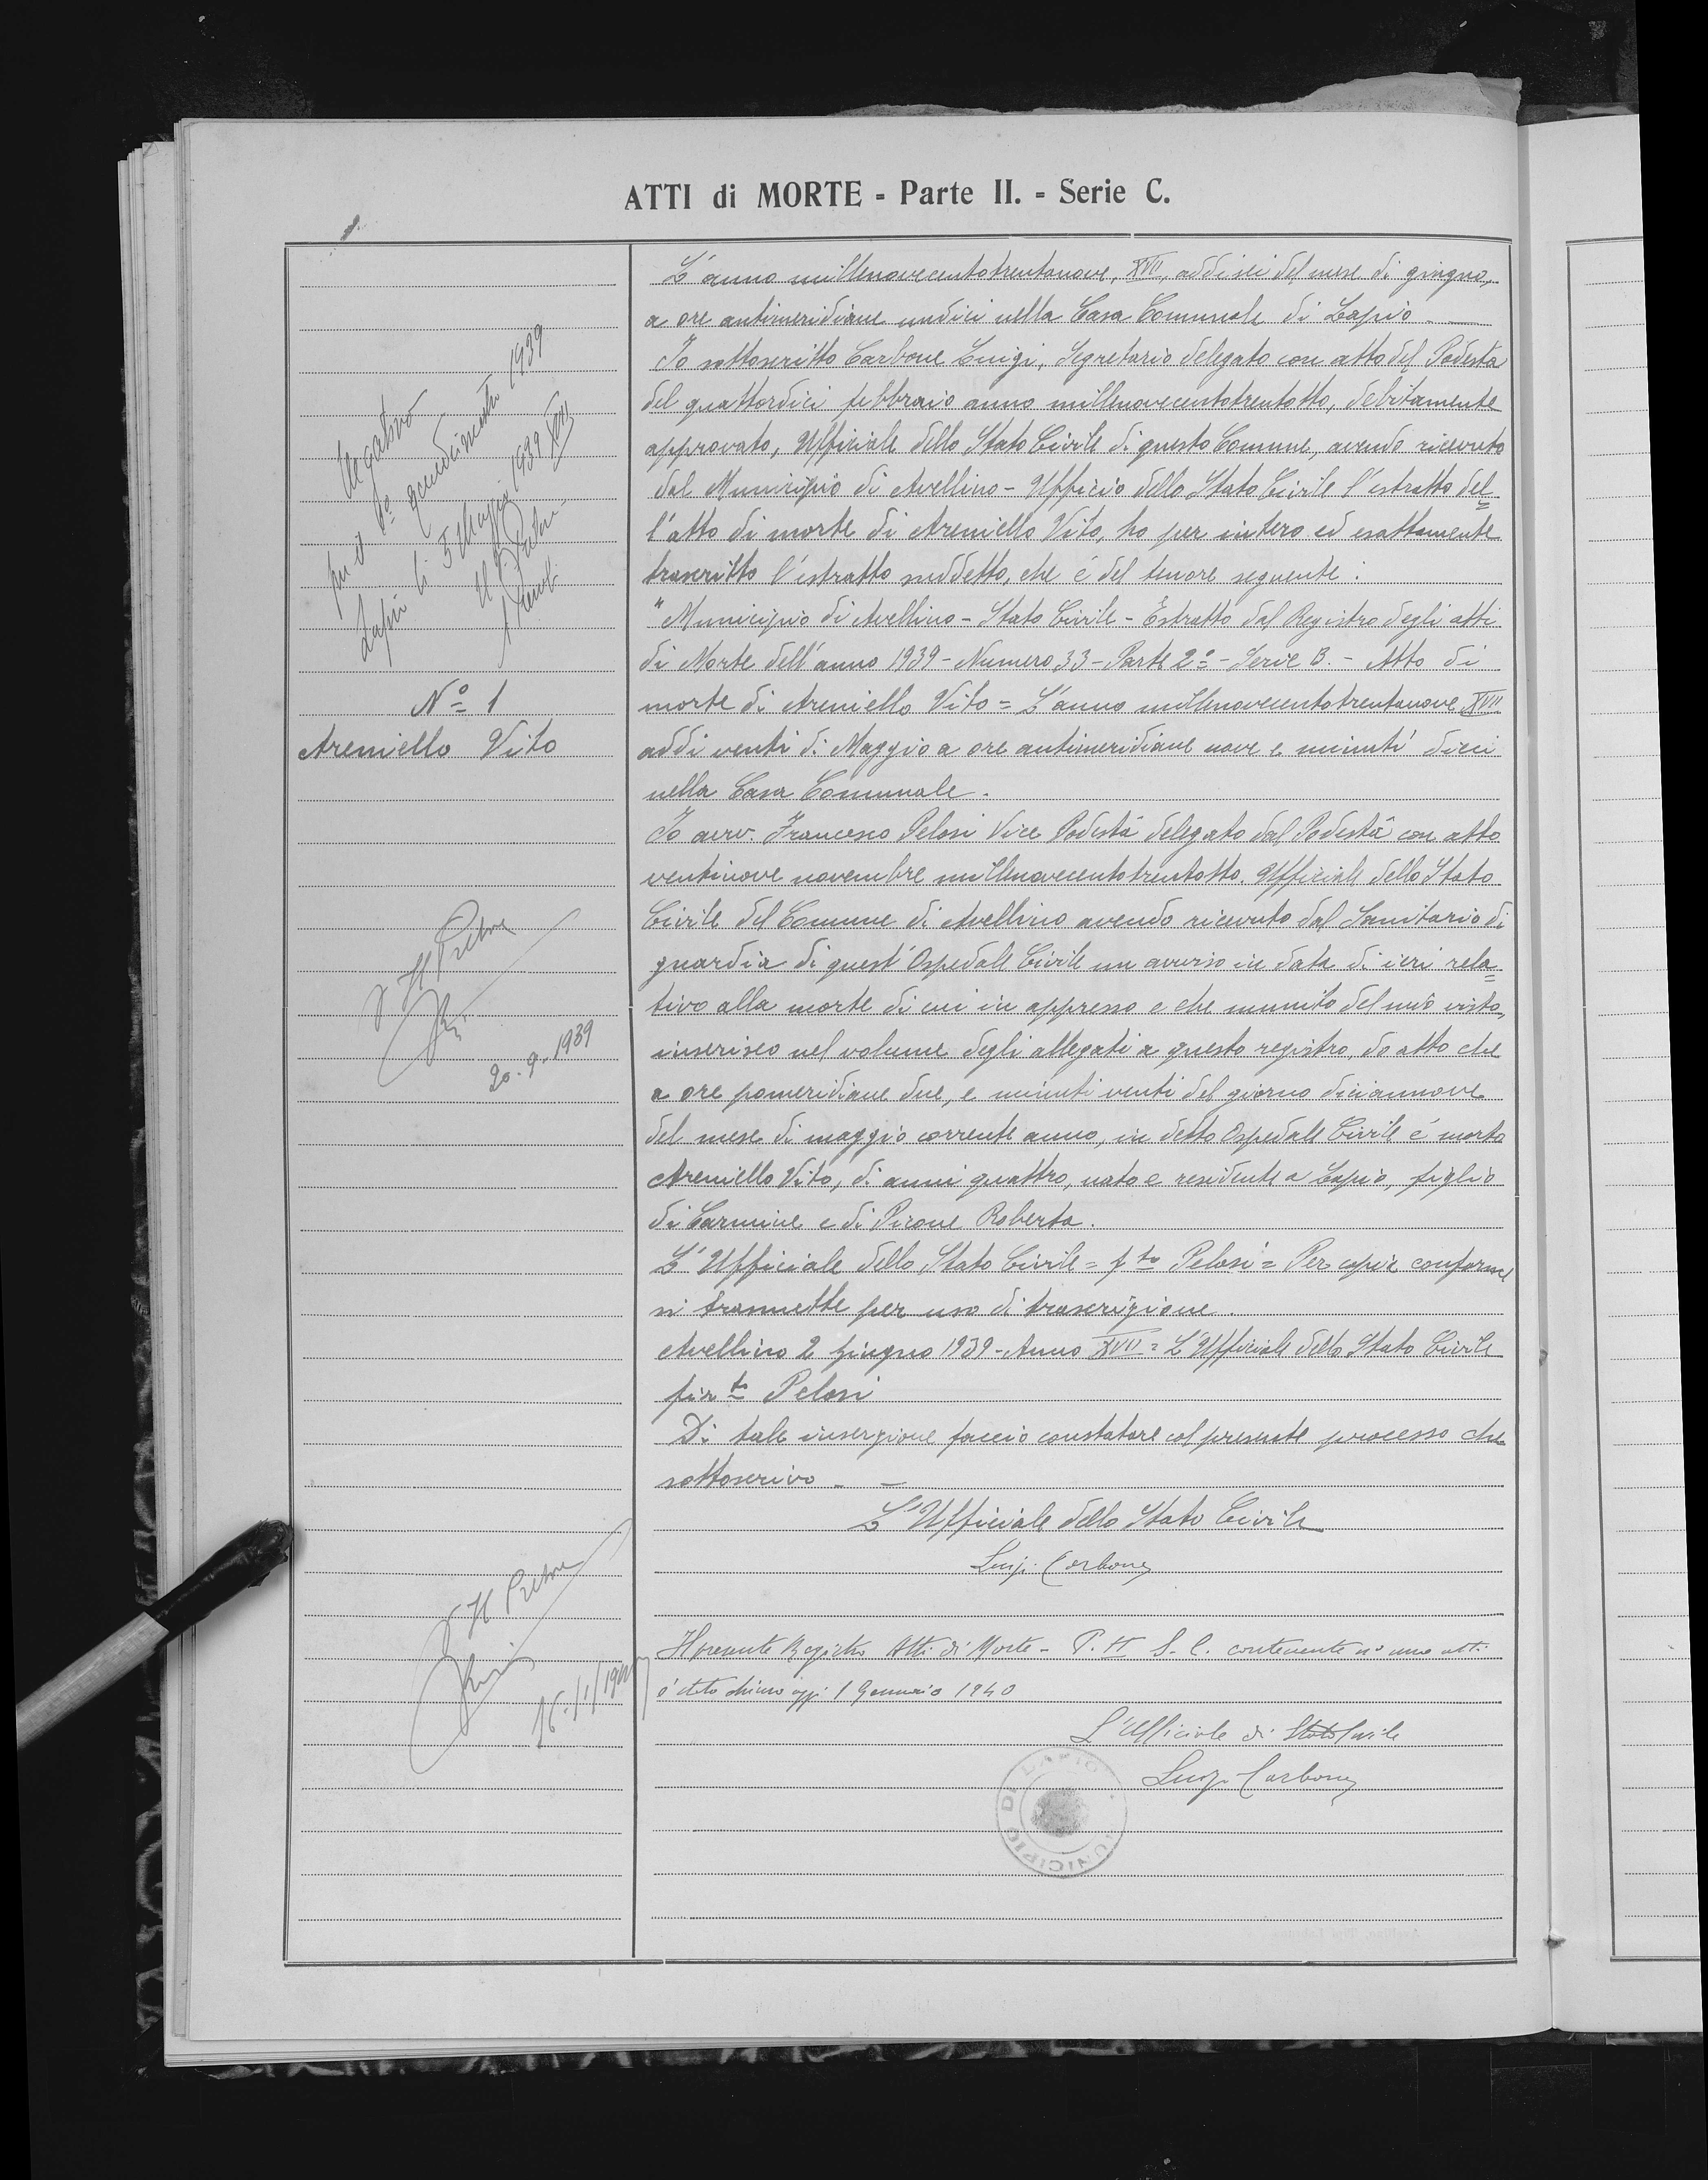 ATTI di MORTE - Parte II. - Serie C.
Negativo
per il 1º quadrimestre 1939
Lapio li 5 Maggio 1939 XVII
Il Pretore
Nº 1
Areniello Vito
Il Pretore
20-9-1939
Il Pretore
16/1/1940
L'anno millenovecentotrentanove, XVII, addì sei del mese di giugno,
a ore antimeridiane undici nella Casa Comunale di Lapio.
Io sottoscritto Carbone Luigi, Segretario delegato con atto del Podestà
del quattordici febbraio anno millenovecentotrentotto, debitamente
approvato, Ufficiale dello Stato Civile di questo Comune, avendo ricevuto
dal Municipio di Avellino - Ufficio dello Stato Civile l'estratto del=
l'atto di morte di Areniello Vito, ho per intero ed esattamente
trascritto l'estratto suddetto, che é del tenore seguente:
"Municipio di Avellino - Stato Civile - Estratto dal Registro degli atti
di Morte dell'anno 1939 - Numero 33 - Parte 2ª - Serie B. - Atto di
morte di Areniello Vito = L'anno millenovecentotrentanove XVII
addì venti di Maggio a ore antimeridiane nove e minuti dieci
nella Casa Comunale.
Io avv. Francesco Pelosi Vice Podestà delegato dal Podestà con atto
ventinove novembre millenovecentotrentotto. Ufficiale dello Stato
Civile del Comune di Avellino avendo ricevuto dal Sanitario di
guardia di quest'Ospedale Civile un avviso in data di ieri rela=
tivo alla morte di cui in appresso e che munito del mio visto,
inserisco nel volume degli allegati a questo registro, do atto che
a ore pomeridiane due, e minuti venti del giorno diciannove
del mese di maggio corrente anno, in detto Ospedale Civile é morto
Areniello Vito, di anni quattro, nato e residente a Lapio, figlio
di Carmine e di Pirone Roberta.
L'Ufficiale dello Stato Civile = fto Pelosi = Per copia conforme
si trasmette per uso di trascrizione.
Avellino 2 giugno 1939 - Anno XVII = L'Ufficiale dello Stato Civile
firto Pelosi
Di tale inserzione faccio constatare col presente processo che
sottoscrivo - -
L'Ufficiale dello Stato Civile
Luigi Carbone
Il presente Registro Atti di Morte - P. II S. C. contenente nº uno atti
é stato chiuso oggi 1 Gennaio 1940
L'Ufficiale di Stato Civile
Luigi Carbone
MUNICIPIO DI LAPIO